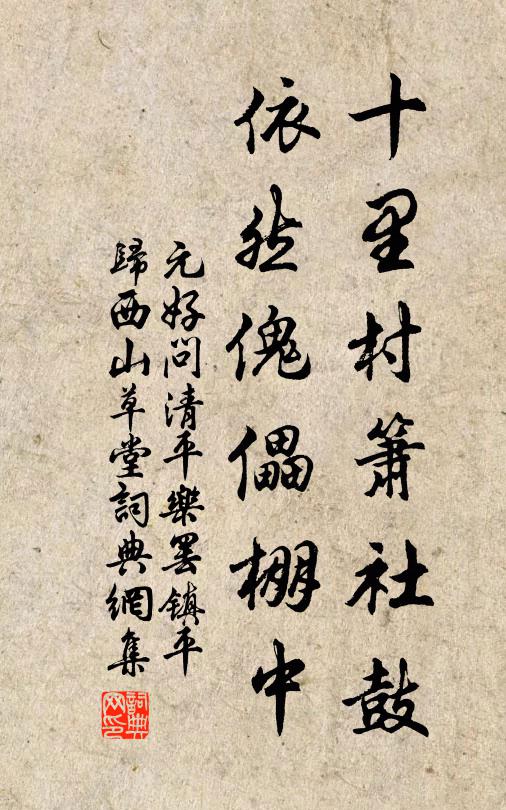 十里村箫社鼓
依然傀儡棚中
元好问清平樂罢镇平
歸西山草堂詞典網集
詞典网印